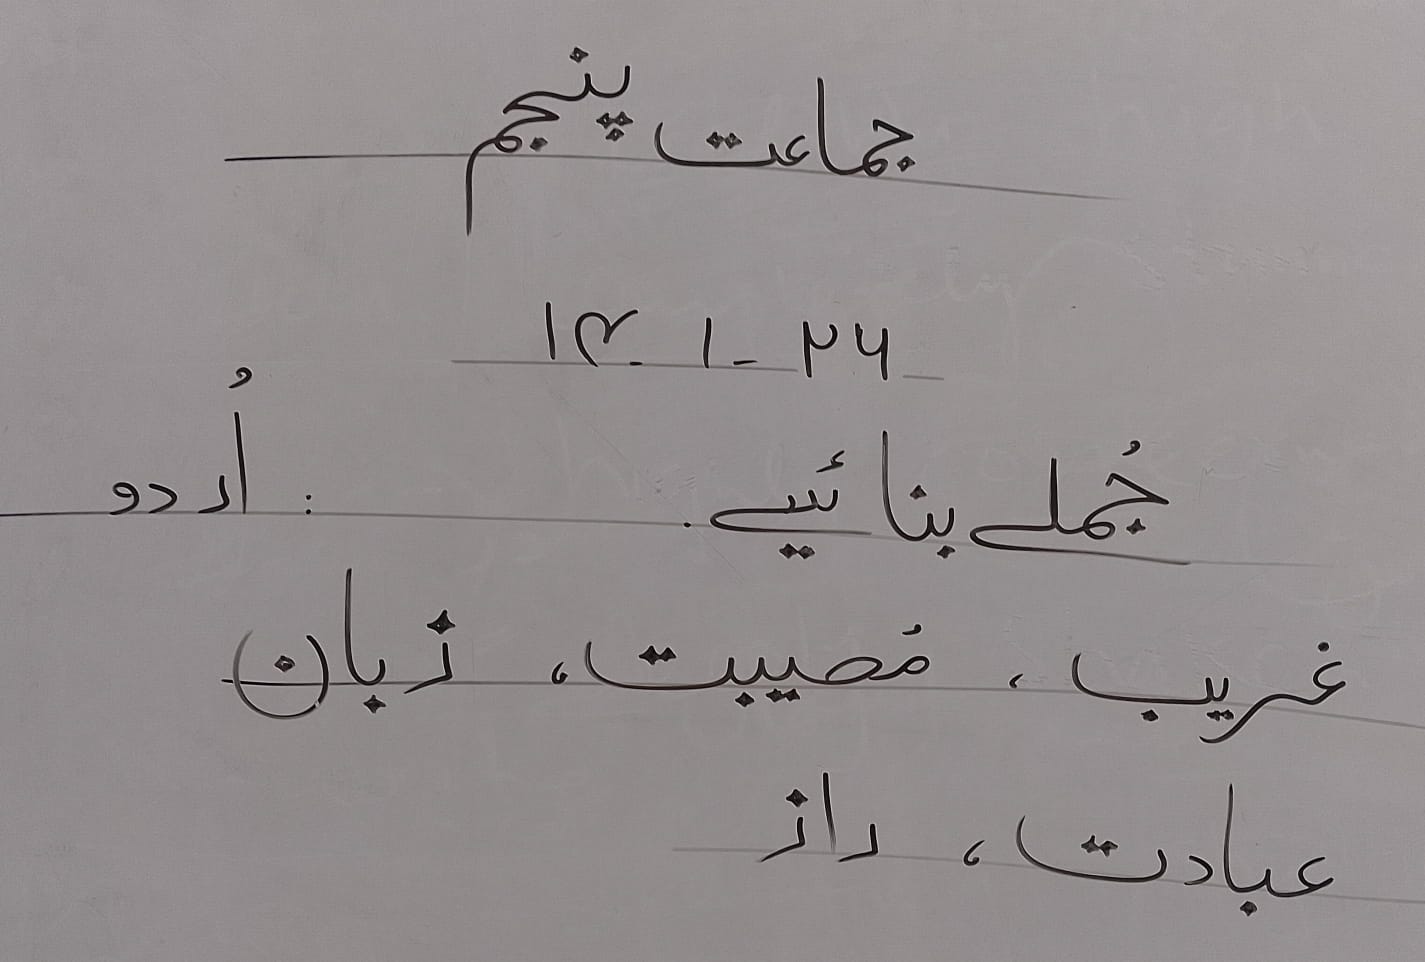 جماعت پنجم
۱۳-۱-۲۶
جُملے بنائیے. اُردو:
غریب، مُصیبت، زبان
عبادت، راز